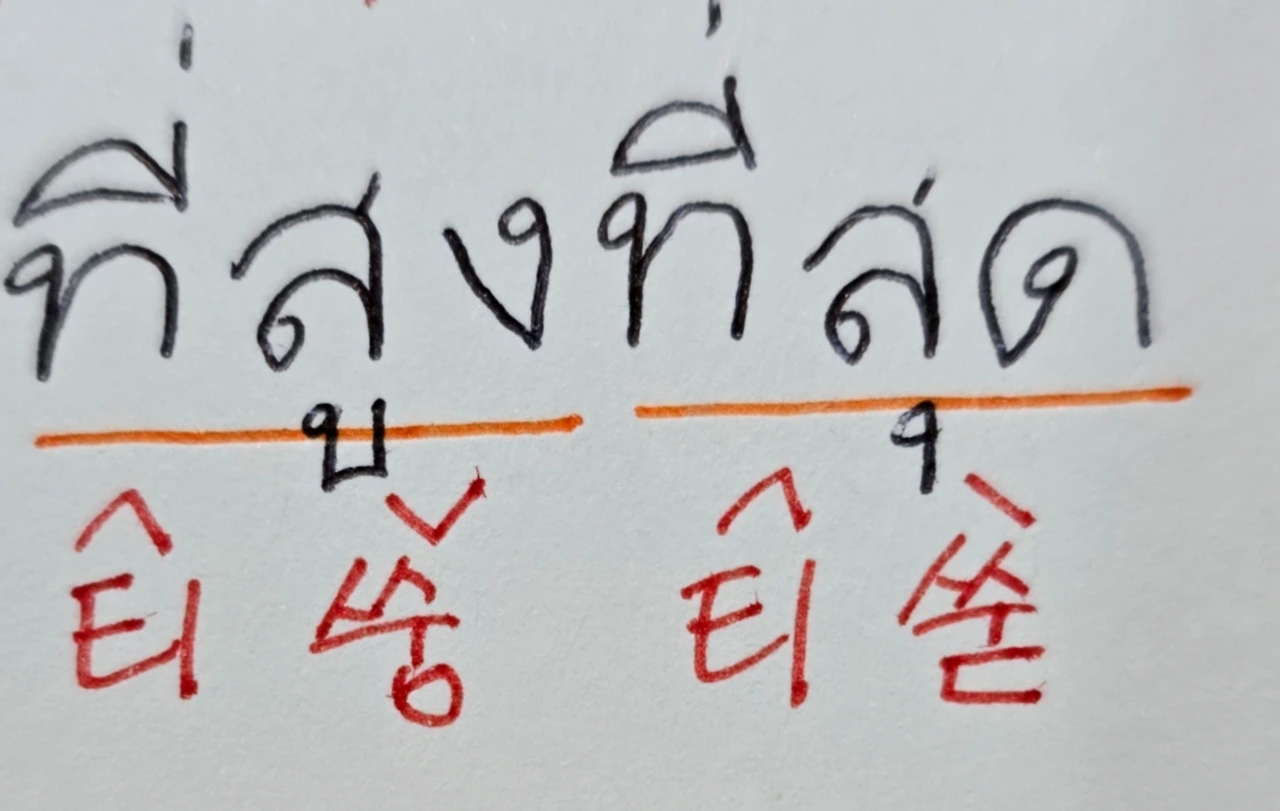 ที่สูงที่สุด
티 쑹 티 쑫